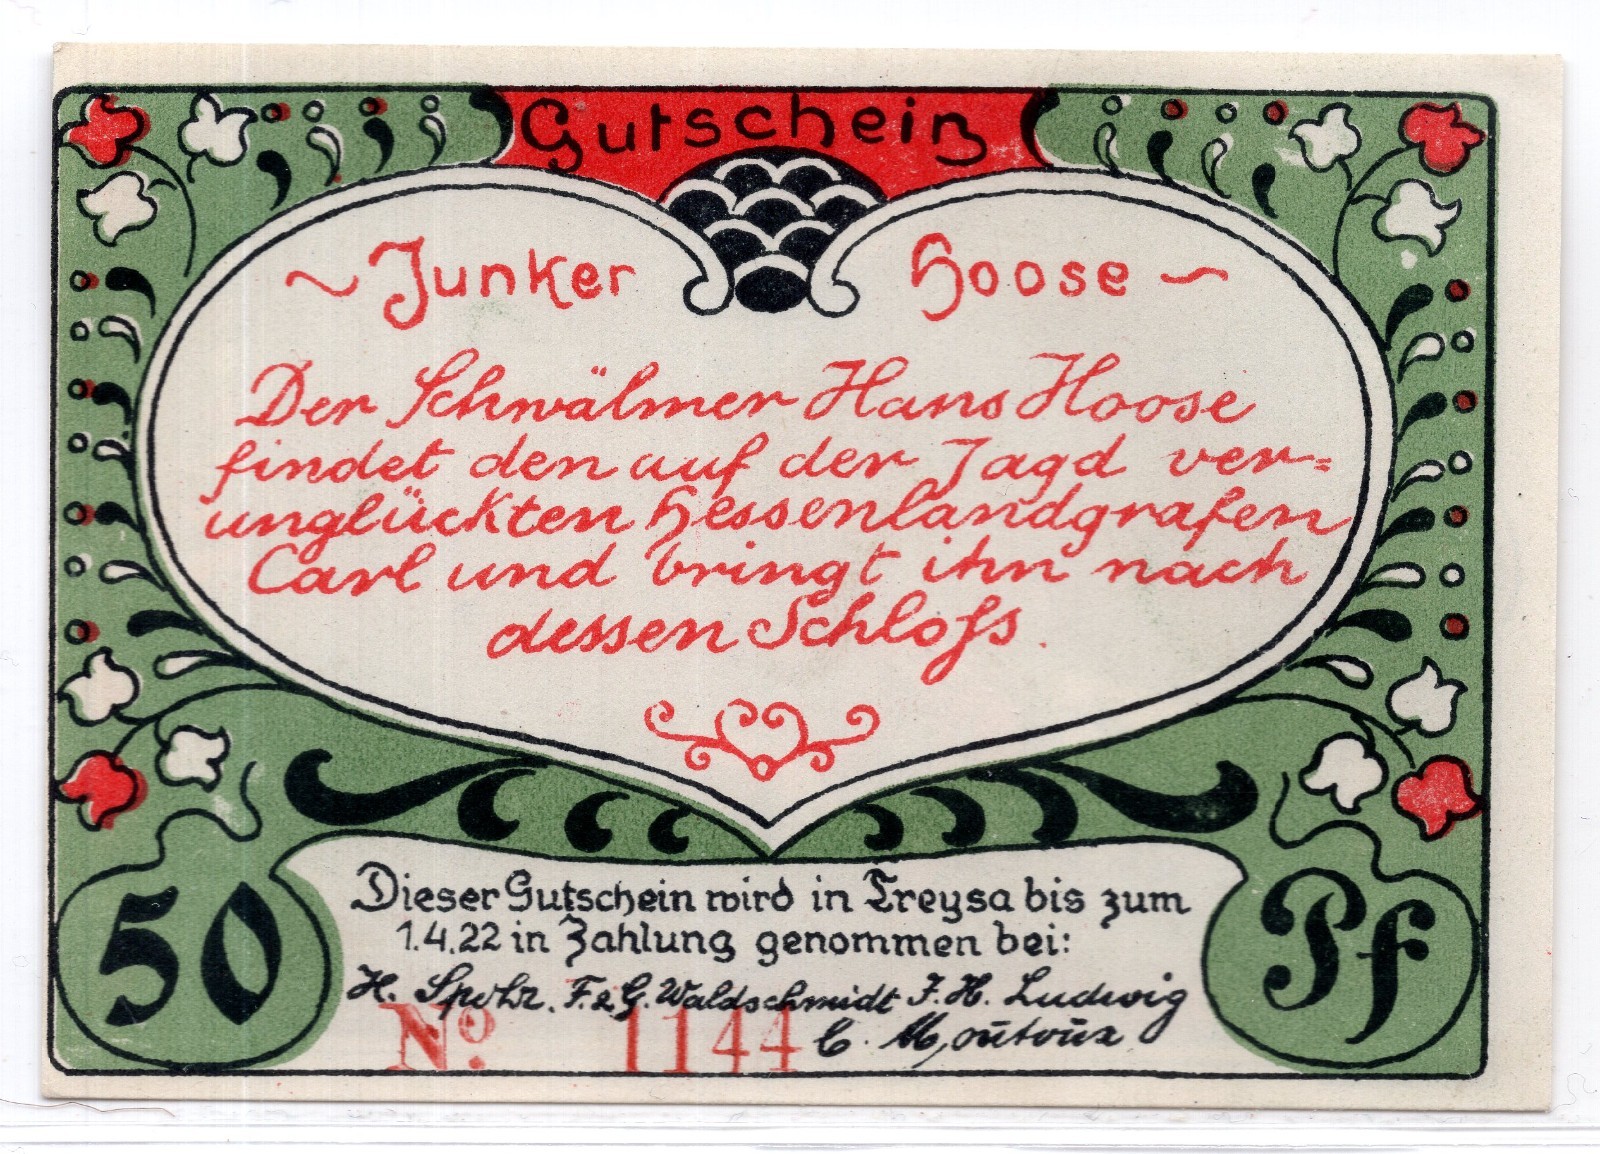 Gutschein
~ Junker Hoose ~
Der Schwälmer Hans Hoose
findet den auf der Jagd ver-
unglückten Hessenlandgrafen
Carl und bringt ihn nach
dessen Schloſs.
Dieser Gutschein wird in Treysa bis zum
1.4.22 in Zahlung genommen bei:
H. Spohr. F. & G. Waldschmidt J. H. Ludwig
C. Moutoux
No. 1144
50 Pf